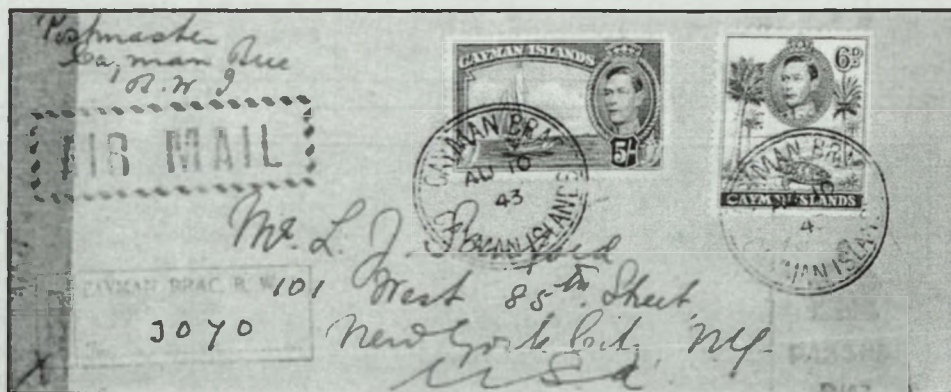 Postmaster
Cayman Brac
B.W.I
AIR MAIL
CAYMAN ISLANDS
5/-
6D
CAYMAN ISLANDS
CAYMAN BRAC
AU 10
43
CAYMAN ISLANDS
CAYMAN BRAC
CAYMAN ISLANDS
Mr. L. J.
101 West 85th. Street
New York City, NY.
USA
CAYMAN BRAC, B. W.
3070
PASSED